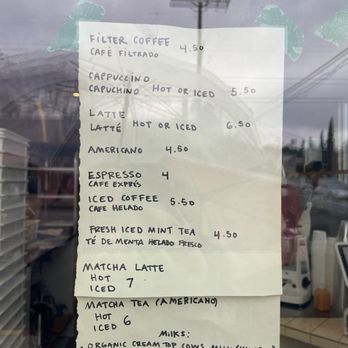 FILTER COFFEE 4.50
CAFÉ FILTRADO
CAPPUCCINO
CAPUCHINO HOT OR ICED 5.50
LATTE
LATTÉ HOT OR ICED 6.50
AMERICANO 4.50
ESPRESSO 4
CAFE EXPRÉS
ICED COFFEE 5.50
CAFE HELADO
FRESH ICED MINT TEA 4.50
TÉ DE MENTA HELADO FRESCO
MATCHA LATTE
HOT
ICED 7
MATCHA TEA (AMERICANO)
HOT
ICED 6
MILKS:
ORGANIC CREAM TOP COWS MILK